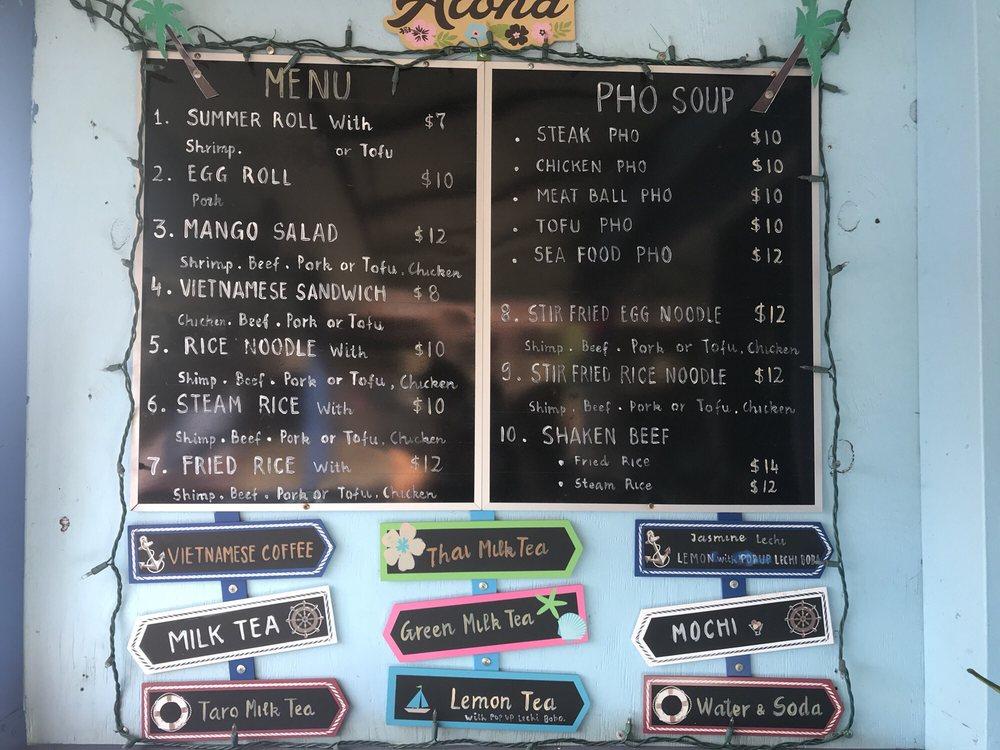 Aloha
MENU
1. SUMMER ROLL With $7
Shrimp. or Tofu
2. EGG ROLL $10
Pork
3. MANGO SALAD $12
Shrimp. Beef. Pork or Tofu, Chicken
4. VIETNAMESE SANDWICH $8
Chicken. Beef. Pork or Tofu
5. RICE NOODLE With $10
Shimp. Beef. Pork or Tofu, Chicken
6. STEAM RICE With $10
Shimp. Beef. Pork or Tofu, Chicken
7. FRIED RICE With $12
Shimp. Beef. Pork or Tofu, Chicken
PHO SOUP
. STEAK PHO $10
. CHICKEN PHO $10
. MEAT BALL PHO $10
. TOFU PHO $10
. SEA FOOD PHO $12
8. STIR FRIED EGG NOODLE $12
Shimp. Beef. Pork or Tofu, Chicken
9. STIR FRIED RICE NOODLE $12
Shimp. Beef. Pork or Tofu, Chicken
10. SHAKEN BEEF
• Fried Rice $14
• Steam Rice $12
VIETNAMESE COFFEE
Thai Milk Tea
Jasmine Lechi
LEMON with POPUP LECHI BOBA
MILK TEA
Green Milk Tea
MOCHI
Taro Milk Tea
Lemon Tea
With POP UP Lechi Boba.
Water & Soda